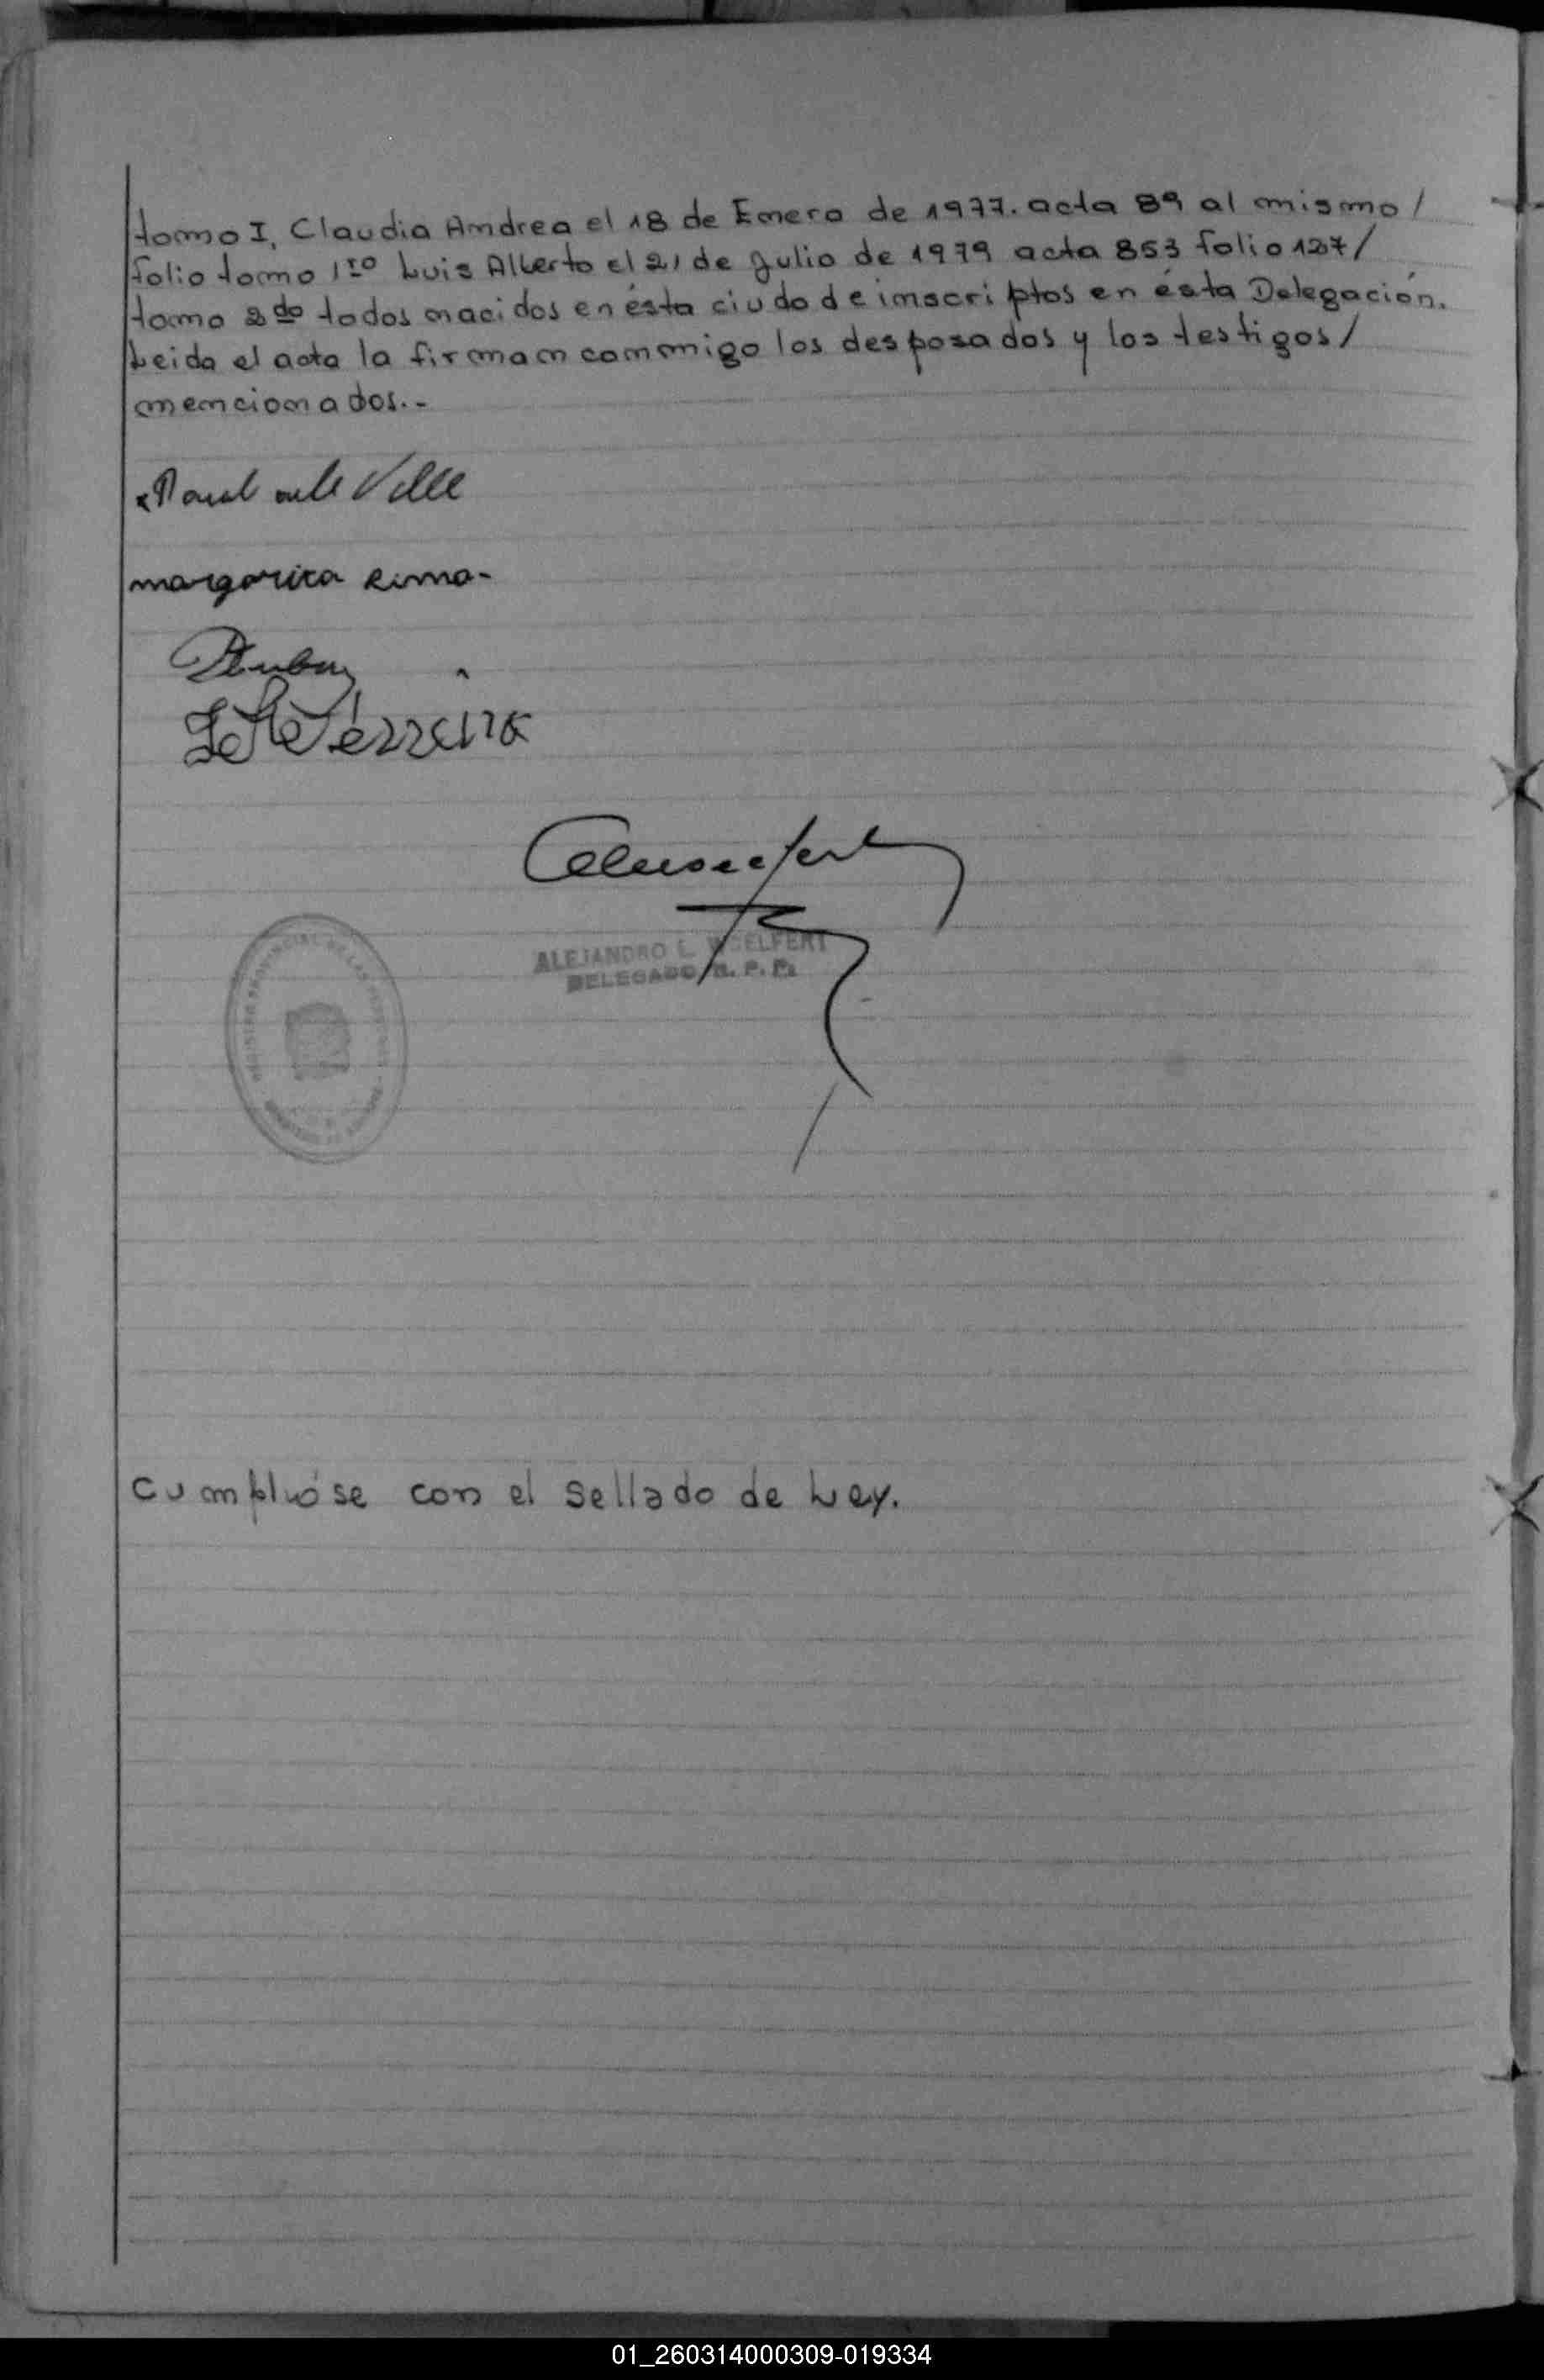 tomo I, Claudia Andrea el 18 de Enero de 1977. acta 89 al mismo/
folio tomo 1ro Luis Alberto el 21 de Julio de 1979 acta 853 folio 127/
tomo 2do todos nacidos en ésta ciudad e inscriptos en ésta Delegación.
Leida el acta la firman conmigo los desposados y los testigos/
mencionados.-
margarita Lima-
ALEJANDRO L. WOELFERT
DELEGADO R. P. P.
REGISTRO PROVINCIAL DE LAS PERSONAS
Cumplióse con el sellado de Ley.
01_260314000309-019334